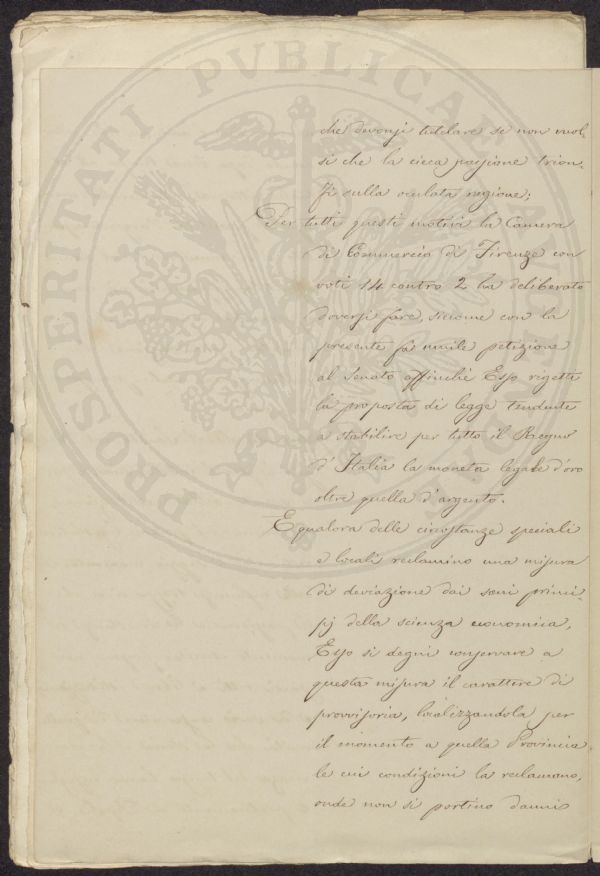 che devonsi tutelare se non vuol-
si che la cieca passione trion-
fi sulla oculata ragione;
Per tutti questi motivi la Camera
di Commercio di Firenze con
voti 14 contro 2 ha deliberato
doversi fare, siccome con la
presente fà umile petizione
al Senato affinchè Esso rigetti
la proposta di legge tendente
a stabilire per tutto il Regno
d'Italia la moneta legale d'oro
oltre quella d'argento.
E qualora delle circostanze speciali
e locali reclamino una misura
di deviazione dai sani princi-
pj della scienza economica,
Esso si degni conservare a
questa misura il carattere di
provvisoria, localizzandola per
il momento a quella Provincia
le cui condizioni la reclamano,
onde non si portino danni
PROSPERITATI PVBLICAE